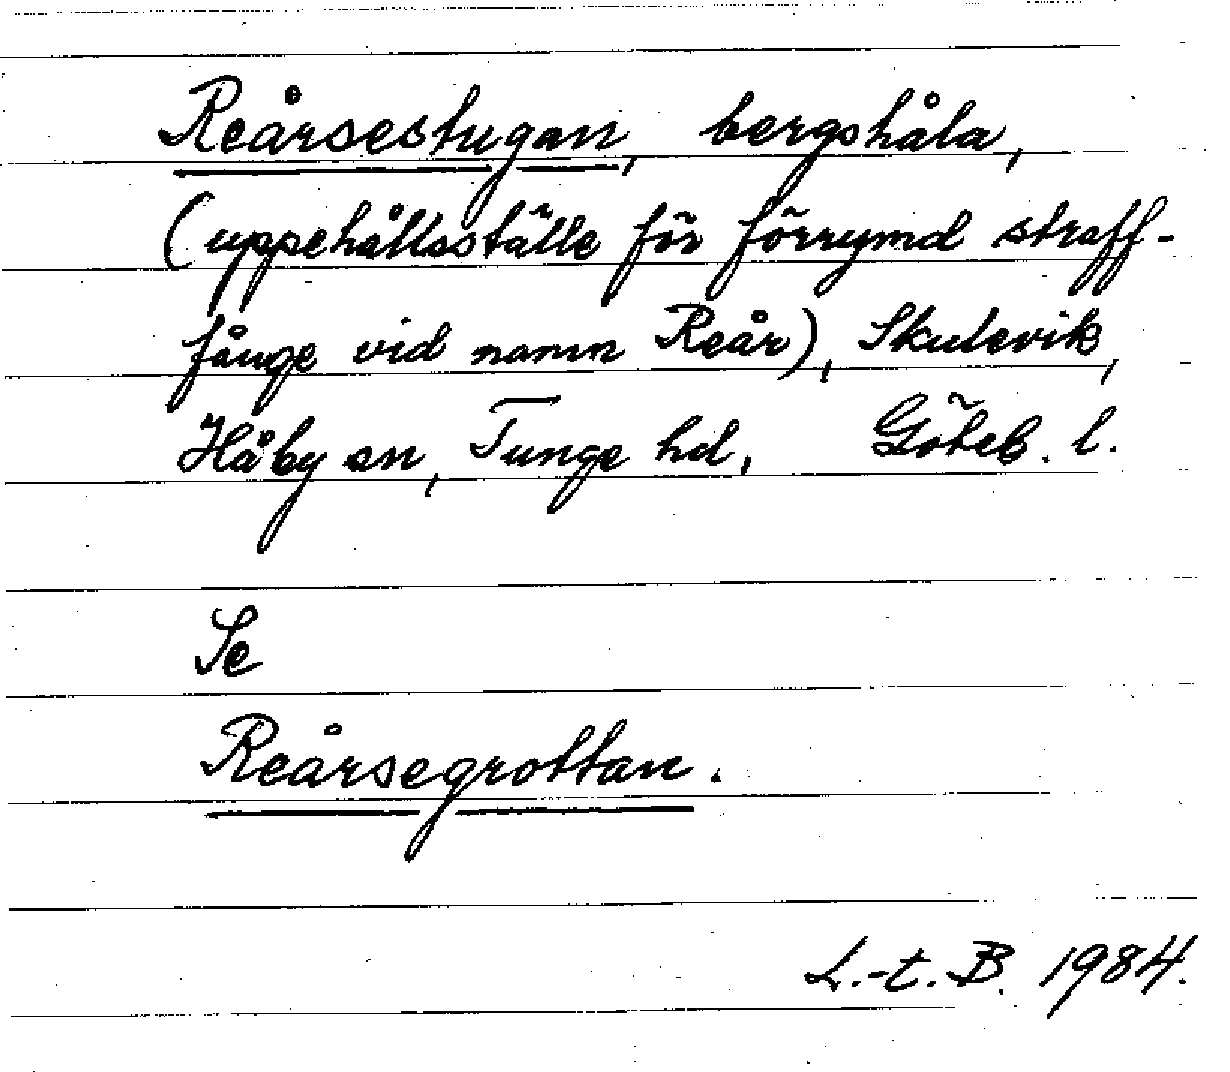 Reårsestugan, bergshåla,
(uppehållsställe för förrymd straff-
fånge vid namn Reår), Skulevik,
Håby sn, Tunge hd, Göteb. l.
Se
Reårsegrottan.
L.-t. B. 1984.